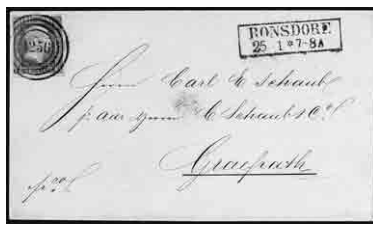 1256
RONSDORF
25 1 * 7-8A
Herrn Carl E Schaub
p. adr Herrn C Schaub & Co
Graefrath